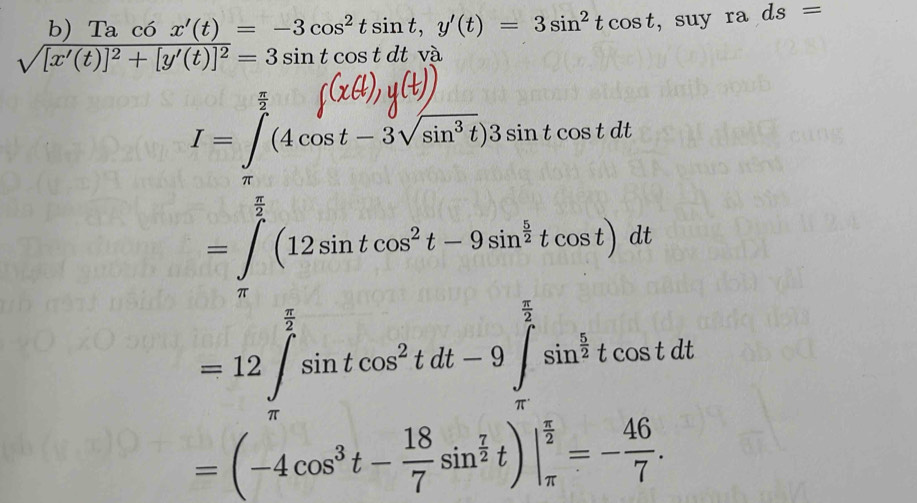 b) Ta có x′(t) = −3 cos² t sin t, y′(t) = 3 sin² t cos t, suy ra ds =
√([x′(t)]² + [y′(t)]²) = 3 sin t cos t dt và
f(x(t), y(t))
I = ∫_π^{π/2} (4 cos t − 3√(sin³ t))3 sin t cos t dt
= ∫_π^{π/2} (12 sin t cos² t − 9 sin^{5/2} t cos t) dt
= 12 ∫_π^{π/2} sin t cos² t dt − 9 ∫_π^{π/2} sin^{5/2} t cos t dt
= (−4 cos³ t − 18/7 sin^{7/2} t) |_π^{π/2} = −46/7.